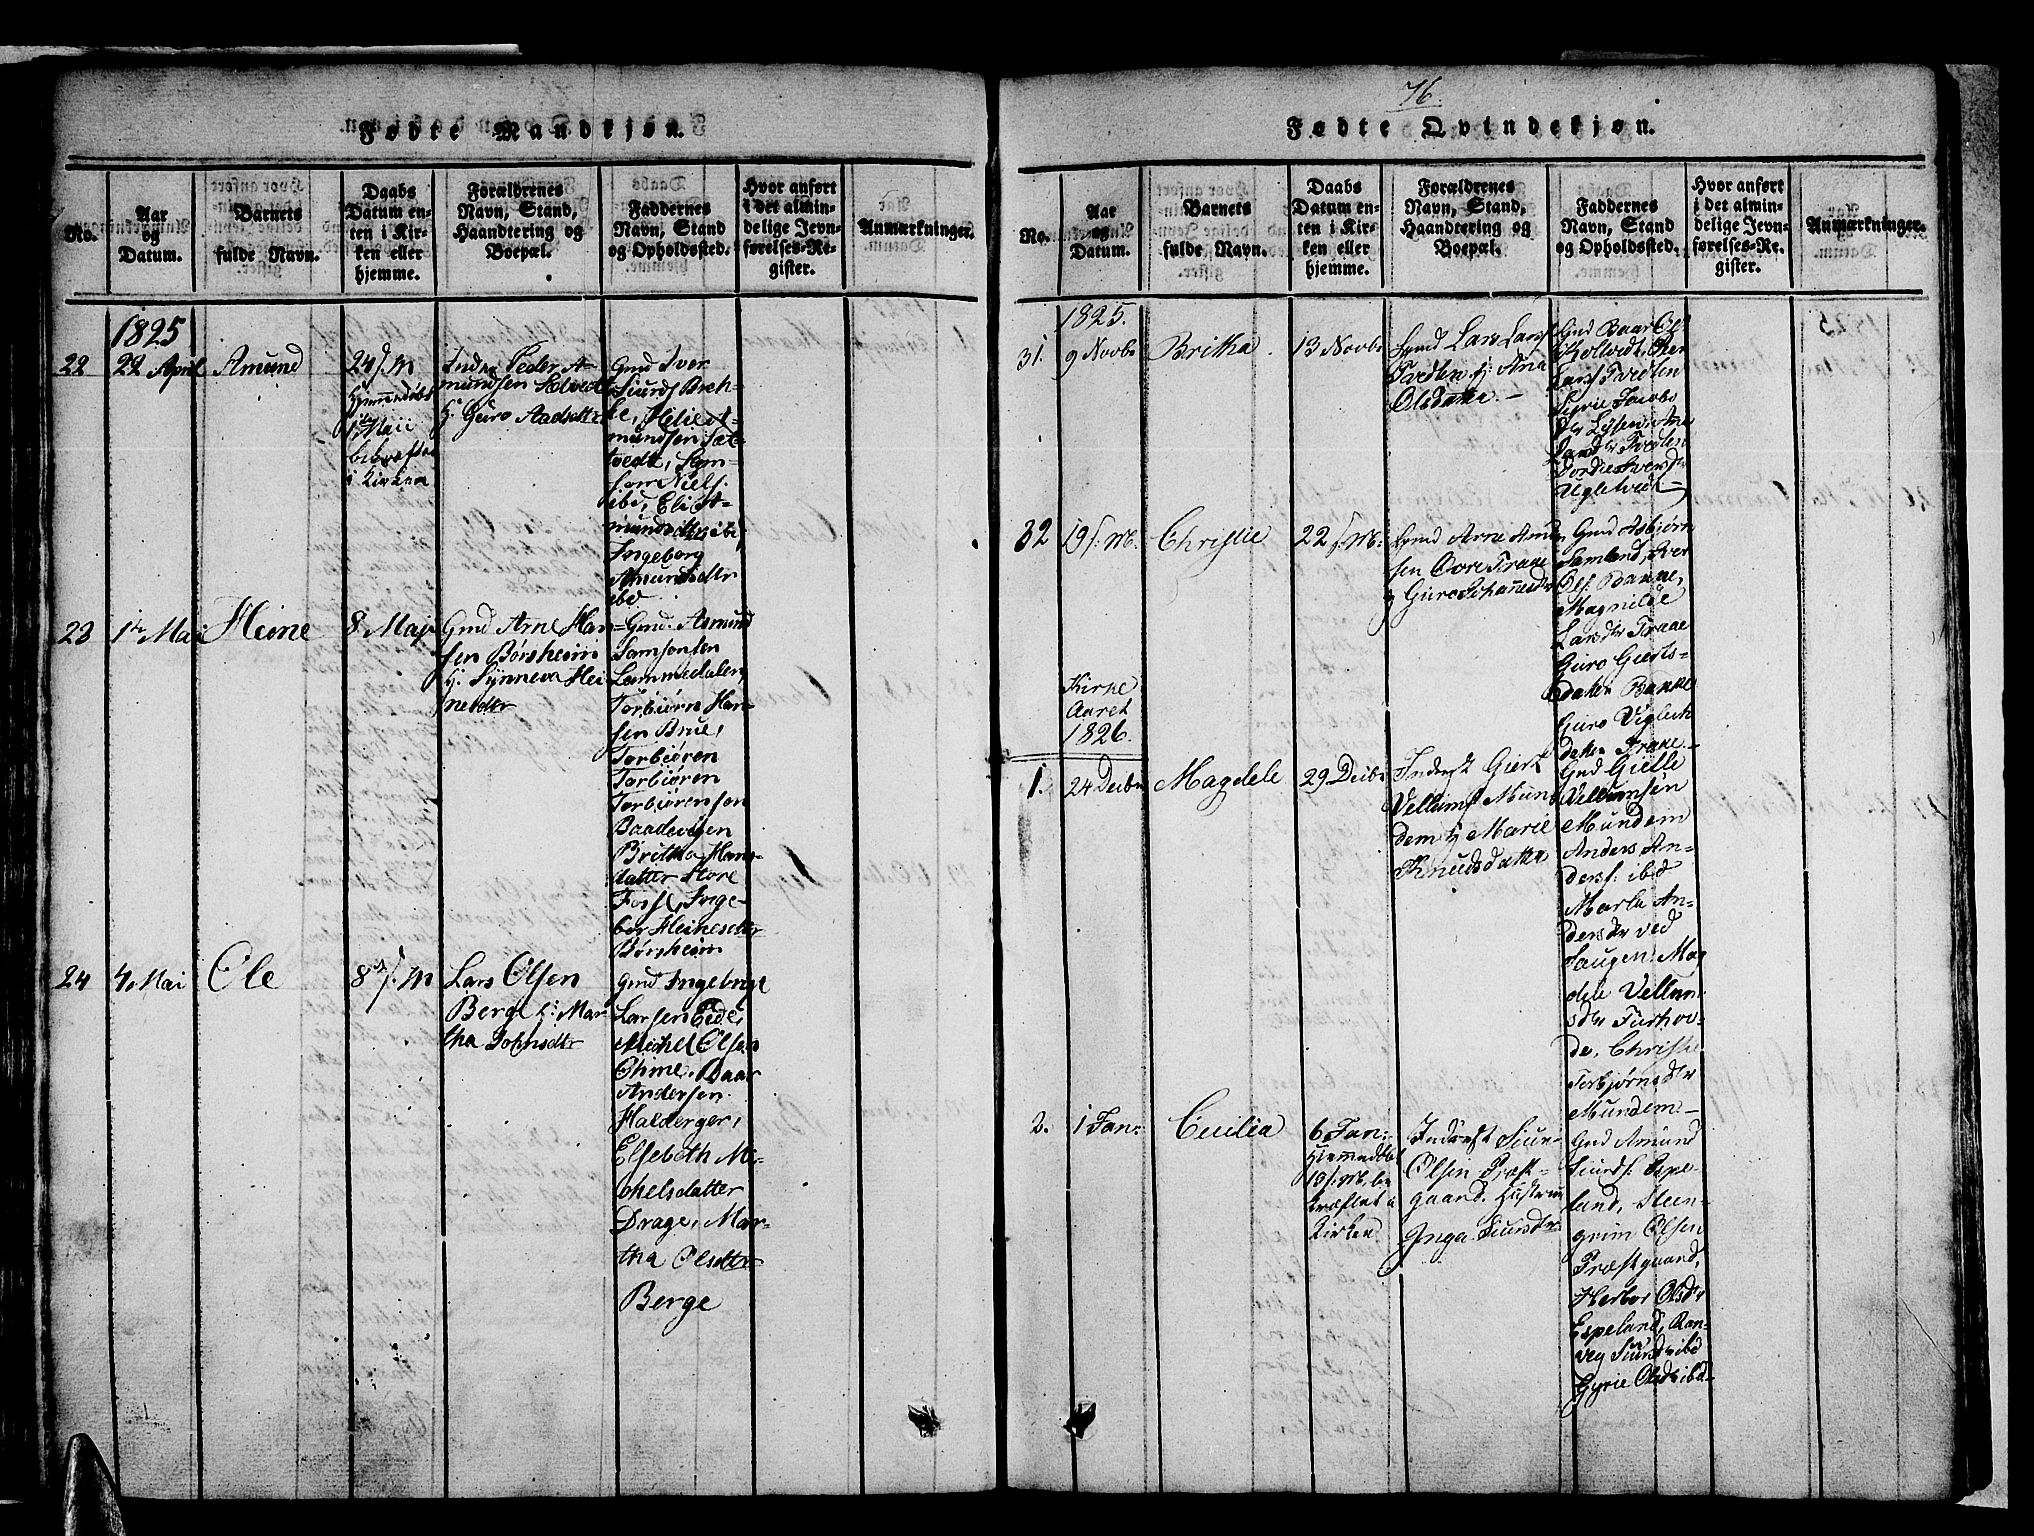 Fødte Mandkjøn.
No.
Aar
og
Datum.
Barnets
fulde Navn.
Daabs
Datum en-
ten i Kir-
ken eller
hjemme.
Forældrenes
Navn, Stand,
Haandtering og
Boepæl.
Faddernes
Navn, Stand
og Opholdssted.
Hvor anført
i det almin-
delige Jevn-
førelses-Re-
gister.
Anmærkninger.
1825
22
22 April
Amund
24 s. M
i Kirken
Peder A-
mundsen
Guro
Gmd Iver
mundsen
Ingeborg
ibd
23
1te Mai
Heine
8 Maj
Gmd Arne Han-
sen Børsheim
H. Synneva Hei
nedtr
Gmd. Asmund
Samsonsen
Lammedalen,
Torbiørn Han-
sen Brue,
Torbiøren
Torbiøren
Torbiørensen
Baadevigen
Britha Hans-
datter Store
Foss, Inge-
bor Heinesdtr
Børsheim
24
4 Mai
Ole
8 s. M
Lars Olsen
Berge &: Mar
tha Johnsdtr
Gmd Ingebrigt
Larsen Eide,
Michel Olsen
Ohme, Baar
Andersen
Halderger,
Elsebeth Mi-
chelsdatter
Drage, Mar-
tha Olsdtr
Berge
76.
Fødte Qvindekjøn.
No.
Aar
og
Datum.
Barnets
fulde Navn.
Daabs
Datum en-
ten i Kir-
ken eller
hjemme.
Forældrenes
Navn, Stand,
Haandtering og
Boepæl.
Faddernes
Navn, Stand
og Opholdssted.
Hvor anført
i det almin-
delige Jevn-
førelses-Re-
gister.
Anmærkninger.
1825.
31.
9 Novbr
Britha
13 Novbr
Gmd Lars Lars
Tvedten H. Ana
Olsdatter
Gmd Baar Ol
Lars Tvedten
32
19 s. M.
Christie
22 s. M.
Gmd Arne Amun
sen Øvre Traae
H Guro Johannesdtr
Gmd Asbjørn
Samland, Iver
Ols. Banne,
Magnilde
Larsdtr Traae
Guro Gierts-
datter Banne
Guro Viglich
datter Traae
Kirke
Aaret
1826.
1.
24 Decbr
Magdele
29 Decbr
Inderst Giert
Vellums. Mun
dem H Marie
Knudsdatter
Gmd Gielle
Vellumsen
Mundem
Anders An-
ders. ibd
Marta An-
dersdtr ved
Haugen, Mag
dele Vellum
sdtr Furhov-
de, Christie
Torbjørnsdtr
Mundem
2.
1 Jan:
Cecilia
6 Jan:
Hiemmedøbt
19 s. M. be
kræftet i
Kirken
Inderst Siur
Olsen Præst-
gaard. Hustrue
Inga Siursdtr
Gmd Amund
Siurds. Espe-
land, Steen-
grim Olsen
Præstgaard,
Herbor Olsdtr
Espeland, Ran-
vey Siursdtr ibd
Gyrie Olsdtr ibd